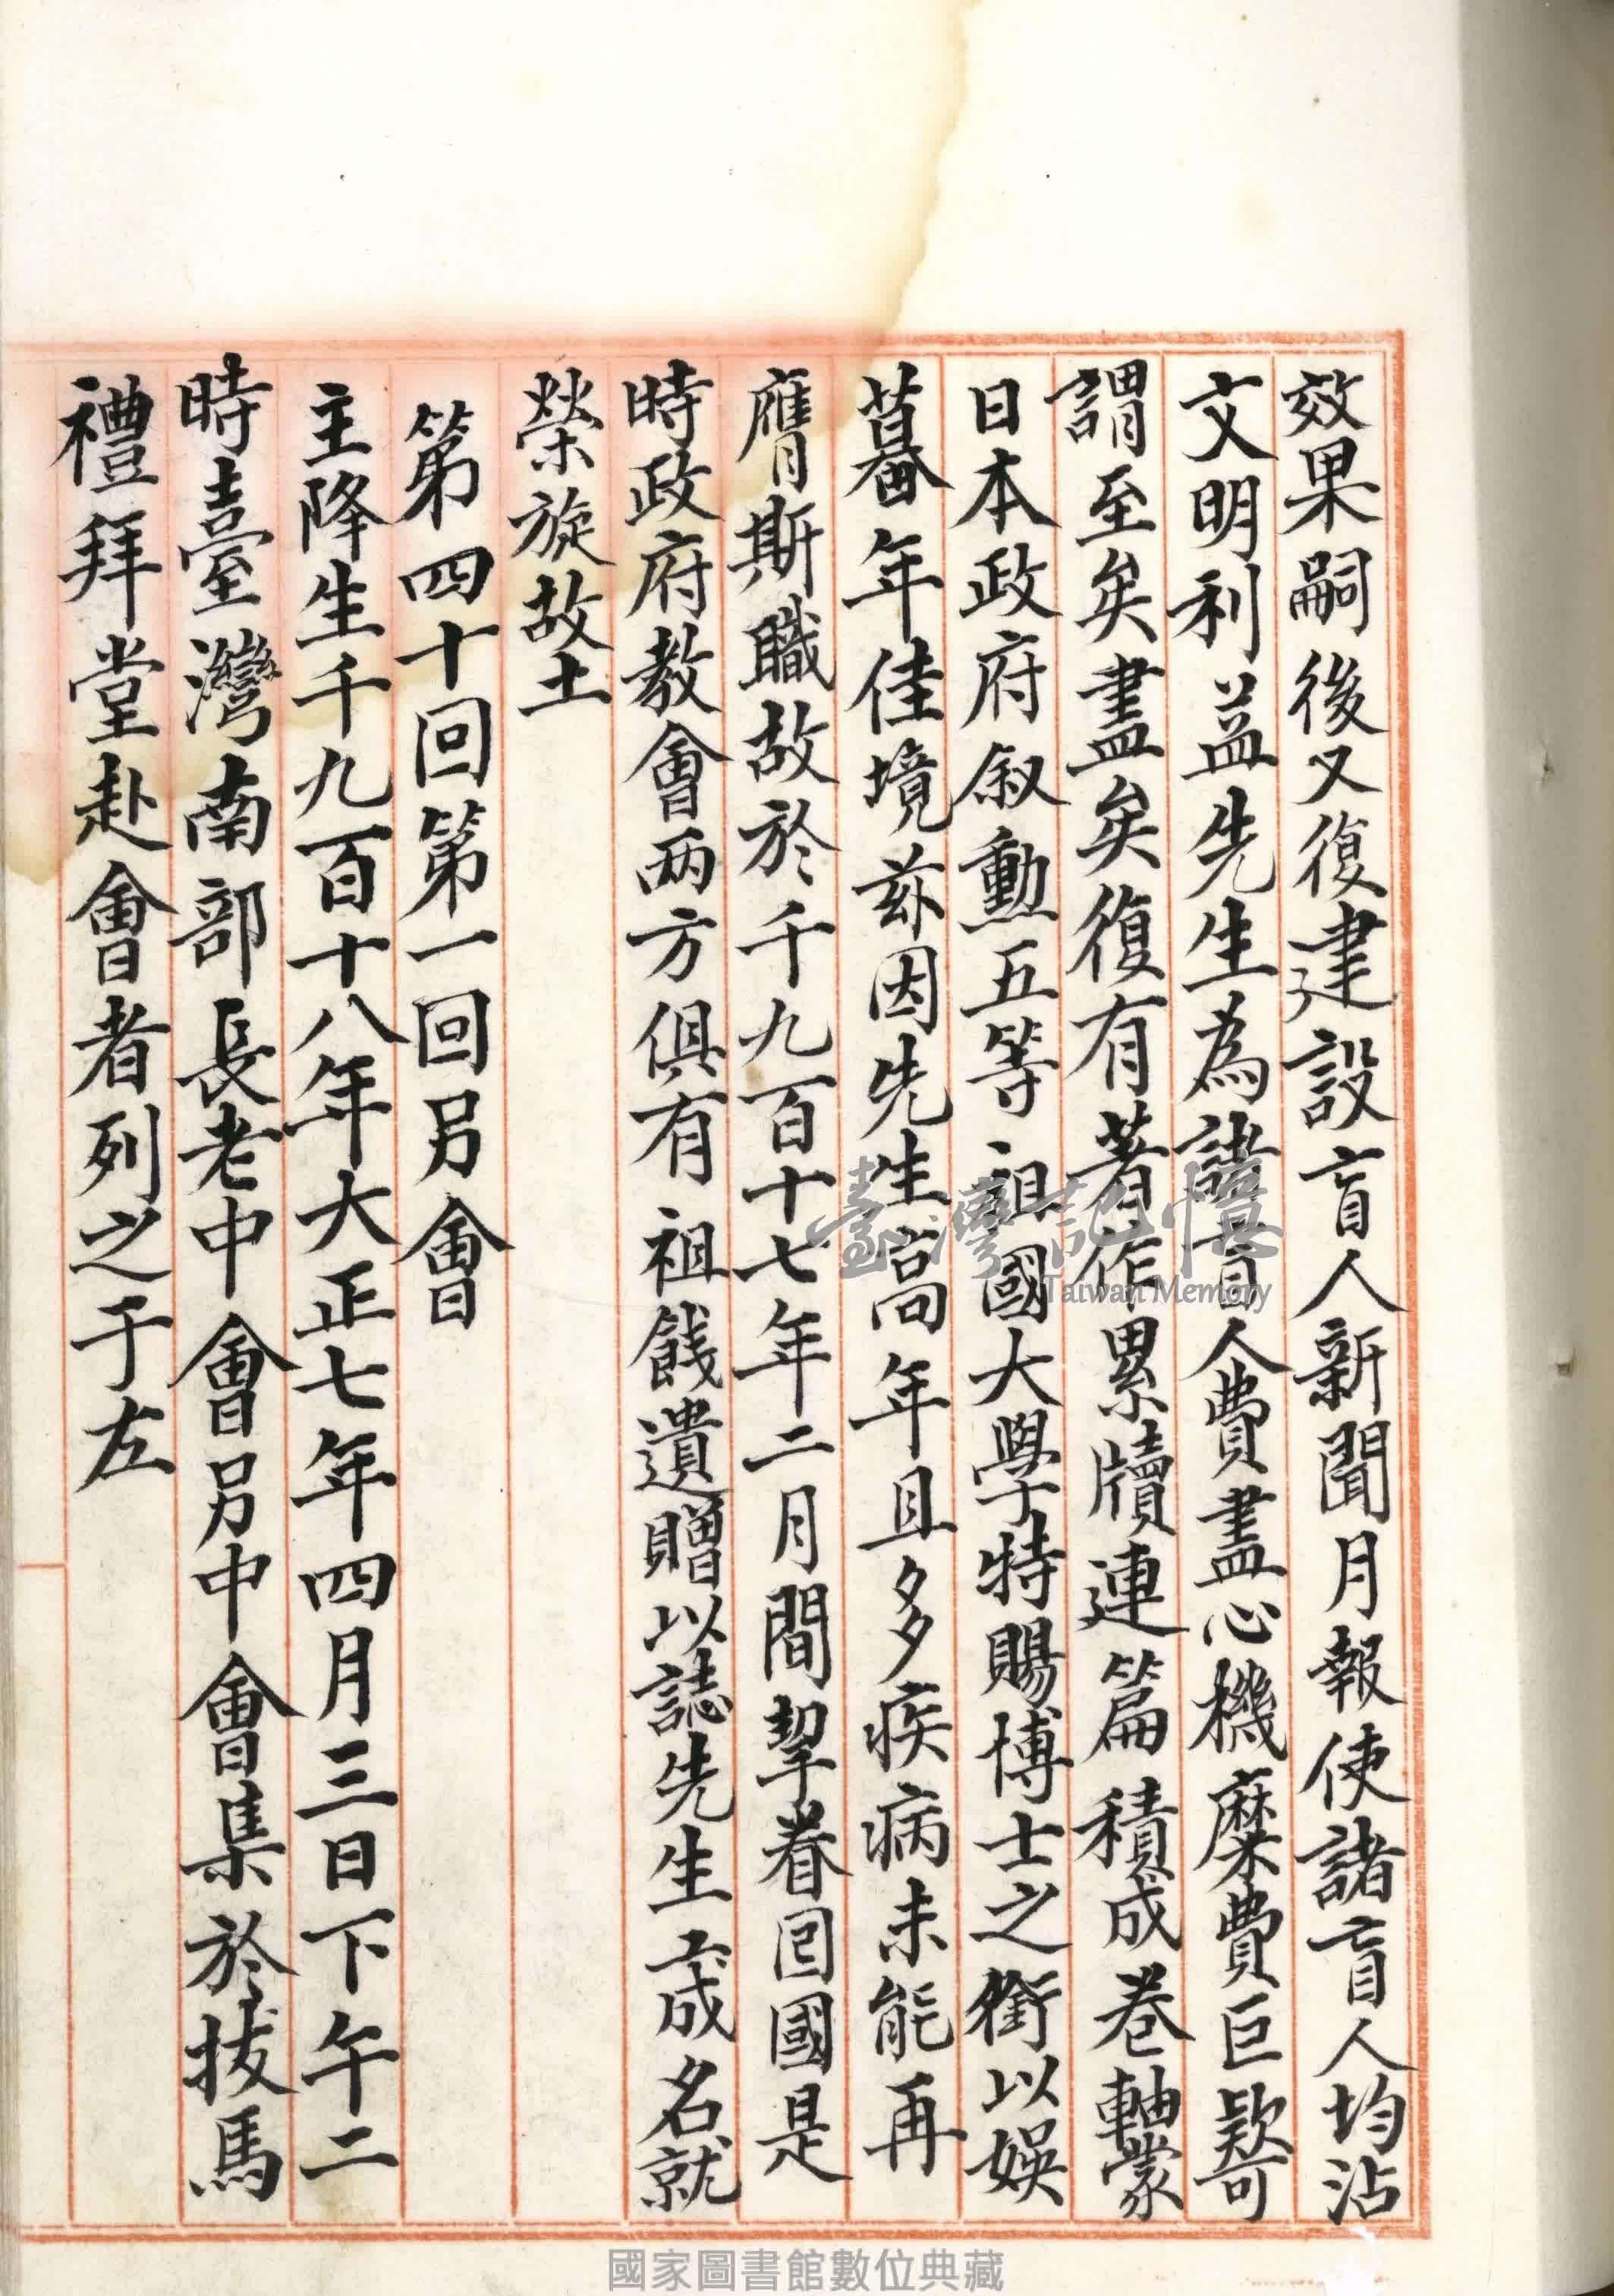 效果嗣後又復建設盲人新聞月報使諸盲人均沾
文明利益先生為諸盲人費盡心機縻費巨欵可
謂至矣盡矣復有著作累牘連篇積成卷軸蒙
日本政府叙勳五等祖國大學特賜博士之銜以娛
暮年佳境茲因先生高年且多疾病未能再
膺斯職故於千九百十七年二月間挈眷回國是
時政府教會两方俱有祖餞遺贈以誌先生工成名就
榮旋故土
第四十回第一回另會
主降生千九百十八年大正七年四月三日下午二
時臺灣南部長老中會另中會集於拔馬
禮拜堂赴會者列之于左
臺灣記憶
Taiwan Memory
國家圖書館數位典藏